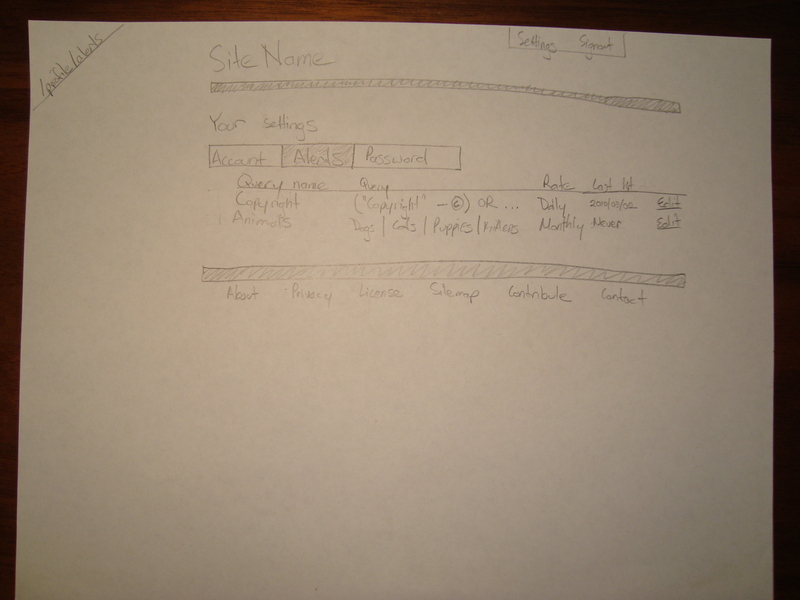 /profile/alerts
Settings Signout
Site Name
Your settings
Account Alerts Password
Query name Query Rate Last
Copyright ("Copyright" - ©) OR ... Daily 2010/09/02 Edit
Animals Dogs | Cats | Puppies | Kittens Monthly Never Edit
About Privacy License Sitemap Contribute Contact